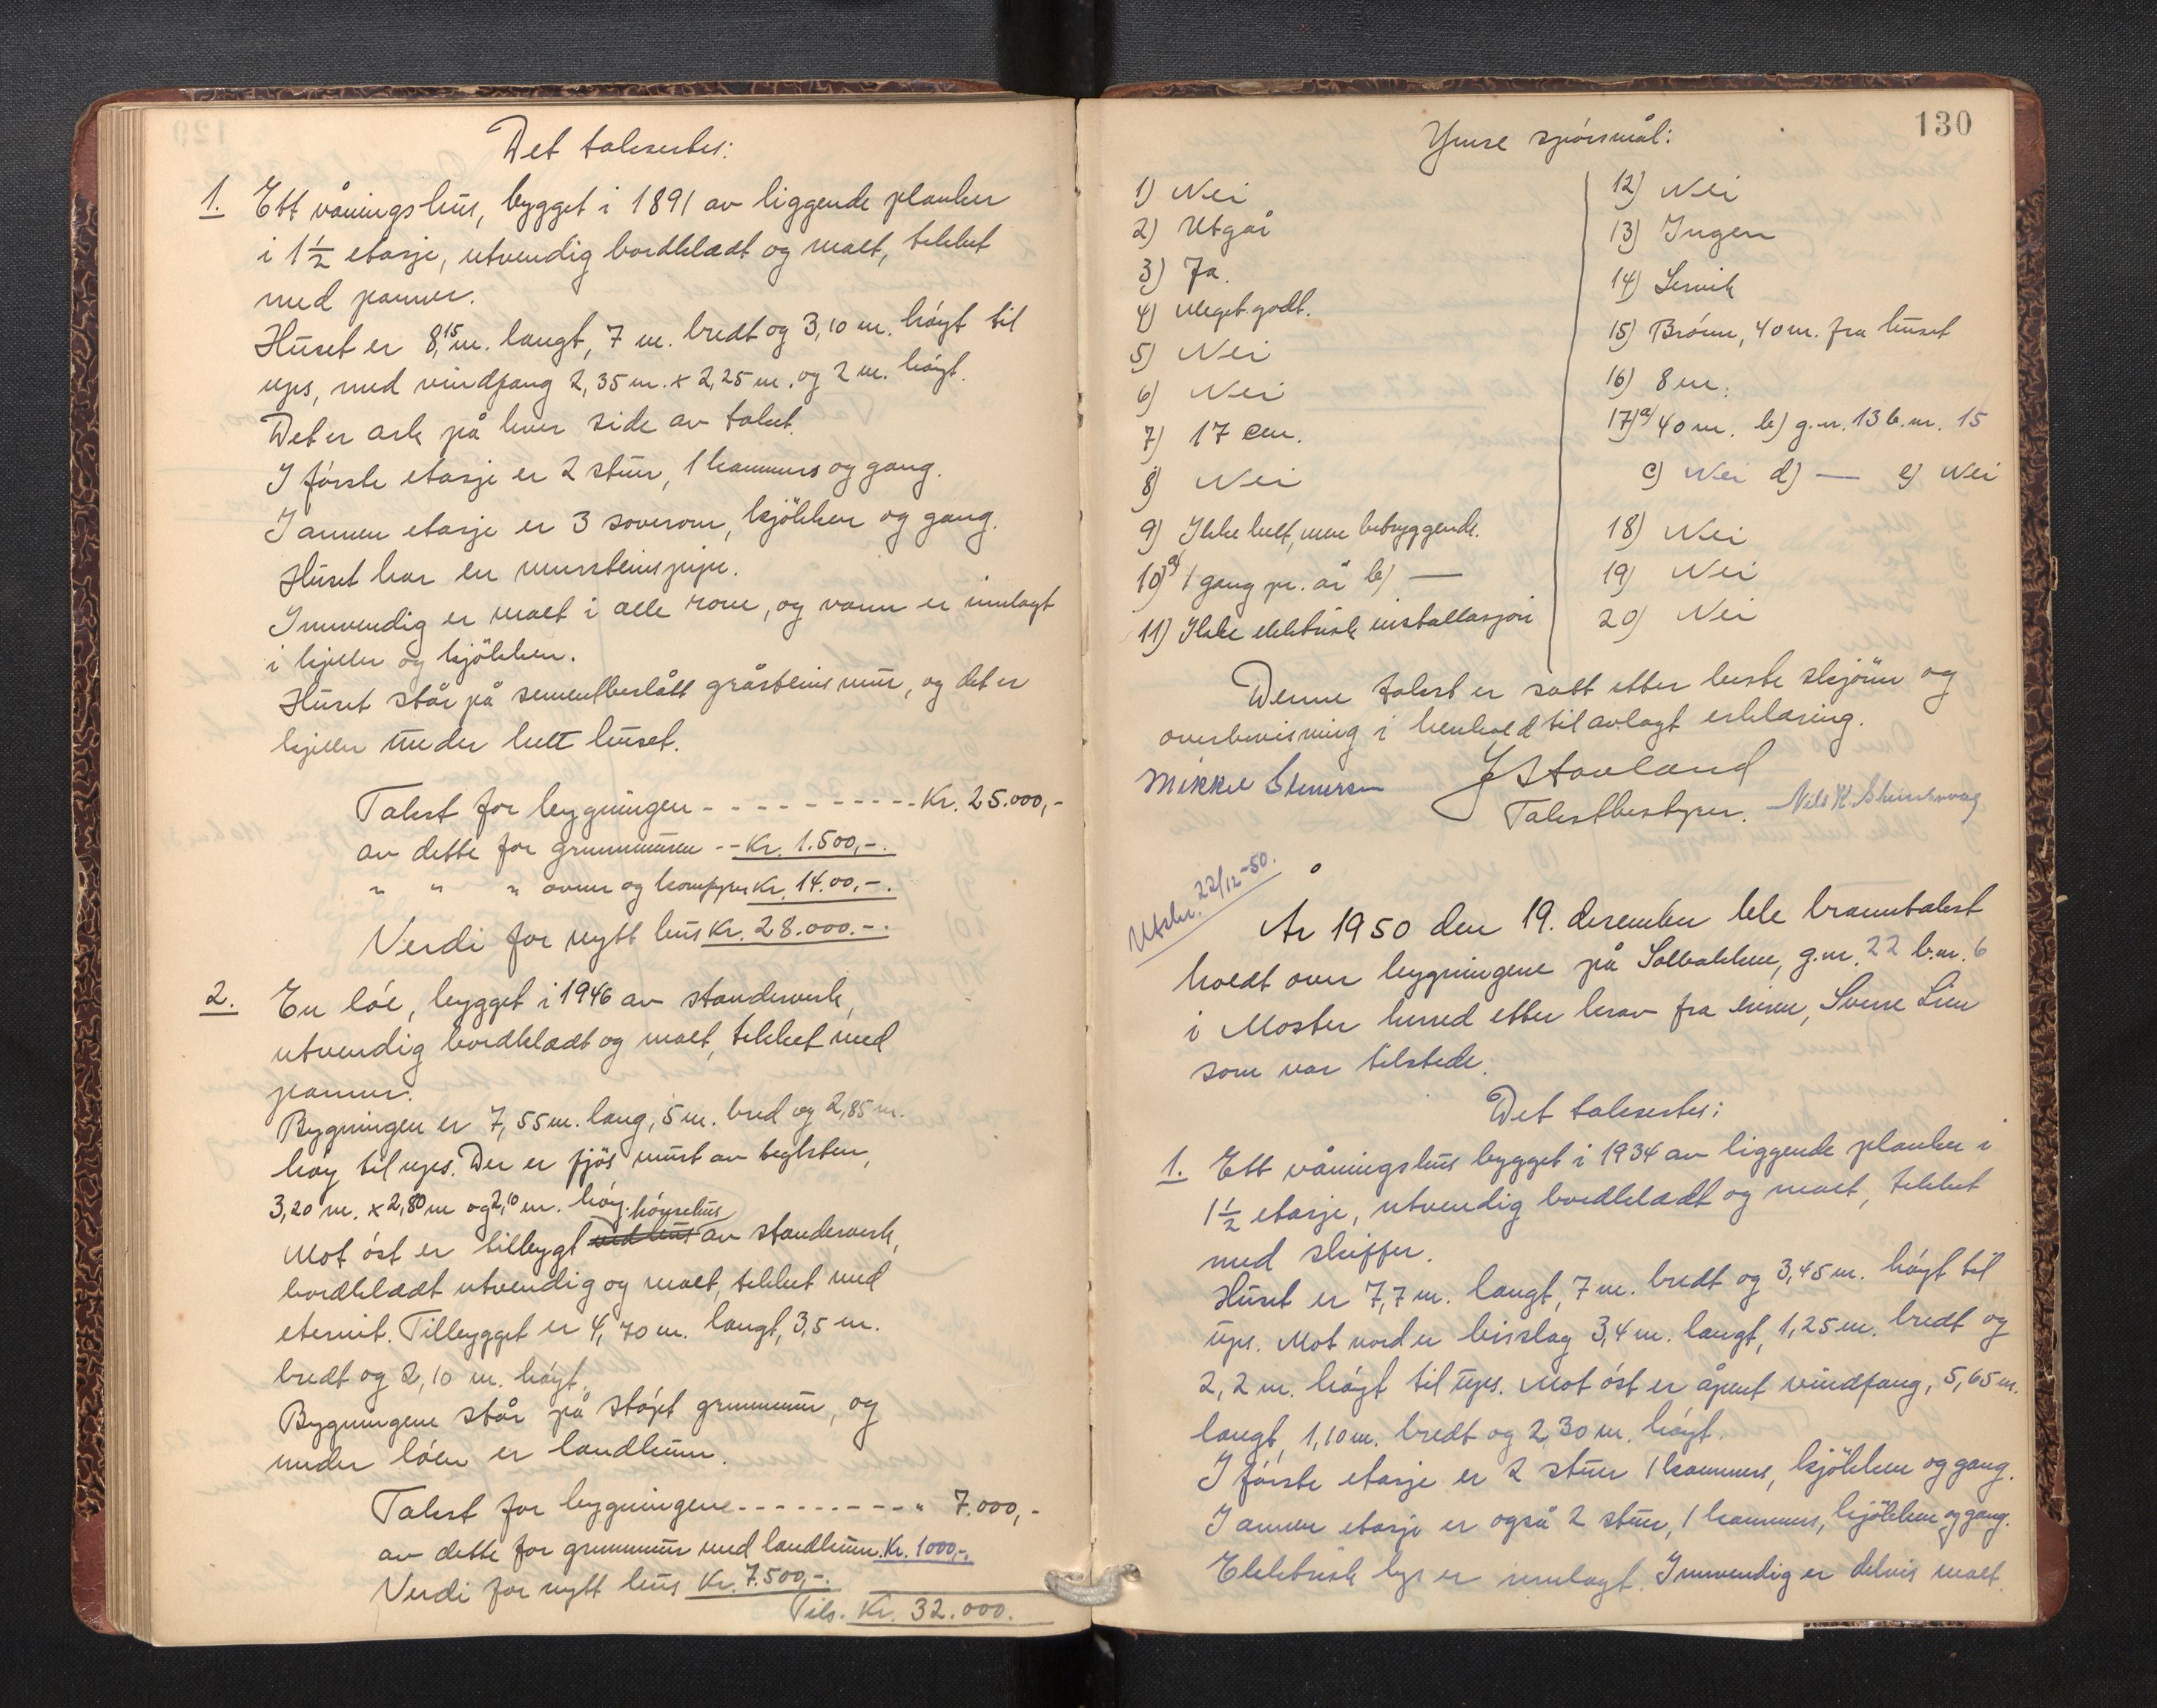 Det takseртes:
1. Ett våningshus, bygget i 1891 av liggende planker
i 1 1/2 etasje, utvendig bordklædt og malt, tekket
med panner.
Huset er 8,15 m. langt, 7 m. bredt og 3,10 m. høyt til
ups, med vindfang 2,35 m. x 2,25 m. og 2 m. høyt.
Det er ark på hver side av taket.
I første etasje er 2 stuer, 1 kammers og gang.
I annen etasje er 3 soverom, kjökken og gang.
Huset har en mursteinspipe.
Innvendig er malt i alle rom, og vann er innlagt
i kjeller og kjökken.
Huset står på sementbeslått gråsteinsmur, og det er
kjeller under helt huset.
Takst for bygningen - - - - - - - - - - Kr. 25.000,-
av dette for grunnmuren -- Kr. 1.500,-.
" " " ovner og komfyrer Kr. 14.00,-.
Verdi for nytt hus Kr. 28.000.-.
2. En löe, bygget i 1946 av standerverk,
utvendig bordklædt og malt, tekket med
panner.
Bygningen er 7,55 m. lang, 5 m. bred og 2,85 m.
høy til ups. Der er fjös murt av teglsten,
3,20 m. x 2,80 m og 2,10 m. høy.
hönsehus
Mot öst er tilbygt vedhus av standerverk,
bordklædt utvendig og malt, tekket med
eternit. Tilbygget er 4,70 m. langt, 3,5 m.
bredt og 2,10 m. høyt.
Bygningene står på støpt grunnmur, og
under löen er landkum.
Takst for bygningene - - - - - - - - - " 7.000,-
av dette for grunnmur med landkum. Kr. 1000,-.
Verdi for nytt hus Kr. 7.500,-.
Tils. Kr. 32.000.
130
Ymse spörsmål:
1) Nei
2) Utgår
3) Ja.
4) Meget godt.
5) Nei
6) Nei
7) 17 cm.
8) Nei
9) Ikke helt, men betryggende.
10) a) 1 gang pr. år b) —
11) Ikke elektrisk installasjon
12) Nei
13) Ingen
14) Lervik
15) Brönn, 40 m. fra huset
16) 8 m.
17) a) 40 m. b) g.nr. 13 b.nr. 15
c) Nei d) — e) Nei
18) Nei
19) Nei
20) Nei
Denne takst er satt etter beste skjönn og
overbevisning i henhold til avlagt erklæring.
Mikkel Stenersen J Stavland
Takstbestyrer. Nils K. Steinsvaag
Utskr. 22/12-50.
År 1950 den 19. desember ble branntakst
holdt over bygningene på Solbakken, g.nr. 22 b.nr. 6
i Moster herred etter krav fra eieren, Sverre Lien
som var tilstede.
Det takseртes:
1. Ett våningshus bygget i 1934 av liggende planker i
1 1/2 etasje, utvendig bordklædt og malt, tekket
med skiffer.
Huset er 7,7 m. langt, 7 m. bredt og 3,45 m. høyt til
ups. Mot nord er bislag 3,4 m. langt, 1,25 m. bredt og
2,2 m. høyt til ups. Mot öst er åpent vindfang, 5,65 m.
langt, 1,10 m. bredt og 2,30 m. høyt.
I første etasje er 2 stuer 1 kammers, kjökken og gang.
I annen etasje er også 2 stuer, 1 kammers, kjökken og gang.
Elektrisk lys er innlagt. Innvendig er delvis malt.